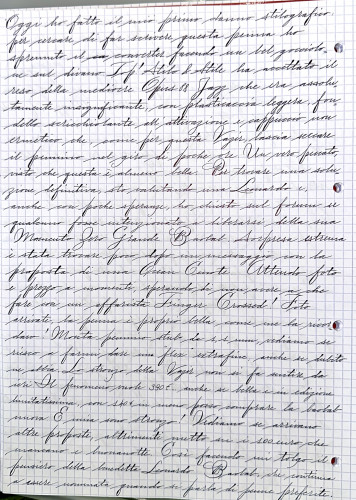 Oggi ho fatto il mio primo danno stilografico
per cercare di far scrivere questa penna ho
spremuto il converter facendo un bel gocciolo
ne sul divano Top! Stilo & Stile ha accettato il
reso della mediocre Opus 88 Jazz che era assolu
tamente insignificante con plasticaccia leggera, fon
dello scricchiolante all'attivazione e cappuccio non
ermetico che, come per questa Vajer, lascia seccare
il pennino nel giro di poche ore. Un vero peccato,
visto che questa è almeno bella. Per trovare una solu
zione definitiva sto valutando una Leonardo e,
anche con poche speranze, ho chiesto sul forum se
qualcuno fosse intenzionato a liberarsi della sua
Momento Zero Grande Baobab. Sorpresa estrema
è stata trovare poco dopo un messaggio con la
proposta di una Ocean Attendo foto
e prezzo a momenti, sperando di non avere a che
fare con un affarista. Finger Crossed! Foto
arrivate, la penna è proprio bella come me la ricor
davo! Monta pennino stub da 1.1 mm, vediamo se
riesco a farmi dare una flex extrafine, anche se dubito
ne abbia. Lo stronzo della Vajer non si fa sentire da
ieri. Il fenomeno vuole 390€, anche se bella e in edizione
limitatissima, con 140€ in meno posso comprare la baobab
nuova. E mica sono stronzo! Vediamo se arrivano
altre proposte, altrimenti metto su i 100 euro che
mancano e buonanotte. Così facendo mi tolgo il
pensiero della benedetta Leonardo Baobab, che continua
a essere nominata quando si parla di penne preferite